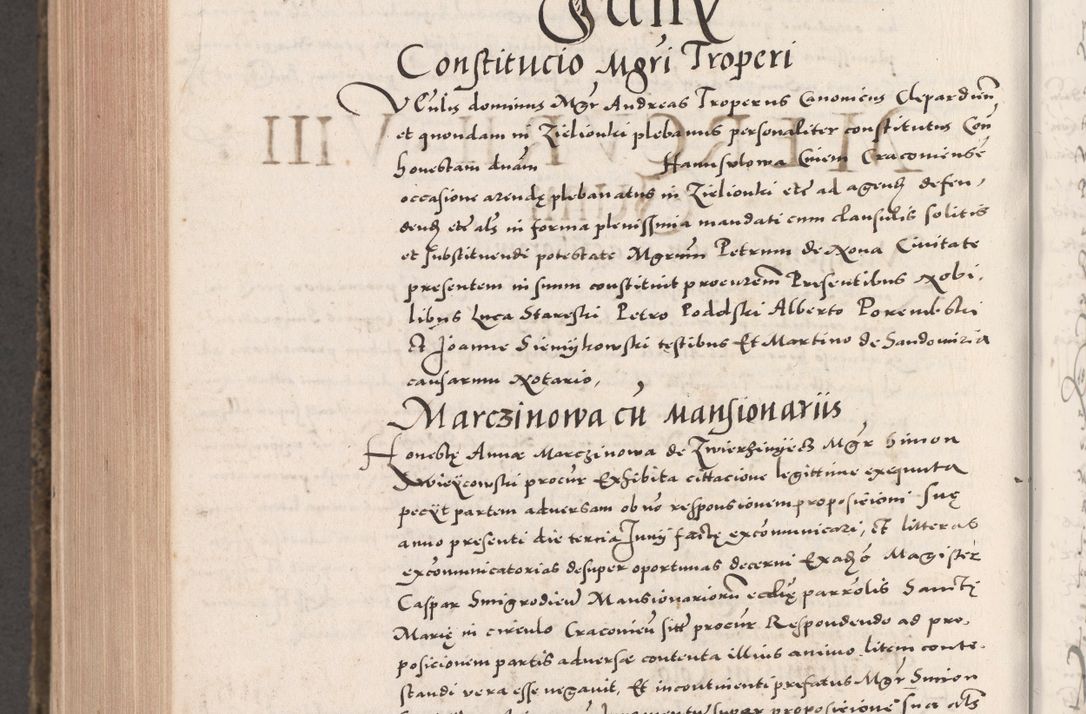 Juny
Constitucio Mgri Troperi
VCulis dominus Mgr Andreas Troperus Canonicus Clepardien
et quondam in Zielionki plebanus personaliter constitutus Con
honestam dnam Hanusvlowa Ciuem Cracouiensē
occasione arendę plebanatus in Zielionki etc ad agend defen,
dend etc als in forma plenissima mandati cum clausulis solitis
et substituendi potestate Mgrum Petrum de Noua Ciuitate
presentem in suum constituit procurem Presentibus Nobi,
libus Luca Stareski Petro Podolski Alberto Porembski
Et Joanne Siemykowski testibus Et Martino de Sandomiria
causarum Notario,
Marczinowa cū Mansionariis
Honestę Annæ Marczinowa de Zwierzinyecz Mgr Simon
procur Exhibita cittacione legittime exequuta
pecyt partem aduersam ob no responsionem proposicioni suę
anno presenti die tercia Juny factę excomunicari, Et litteras
excomunicatorias desuper oportunas decerni Magister
Caspar Smigrodien Mansionariorū ecclię parrolis Sanctę
Marię in circulo Cracouien sitt procur Respondendo ad pro,
posicionem partis aduersæ contenta illius animo litem conte,
standi vera esse negauit, Et incontinenti prefatus Mgr Simon
super proposicione sua als